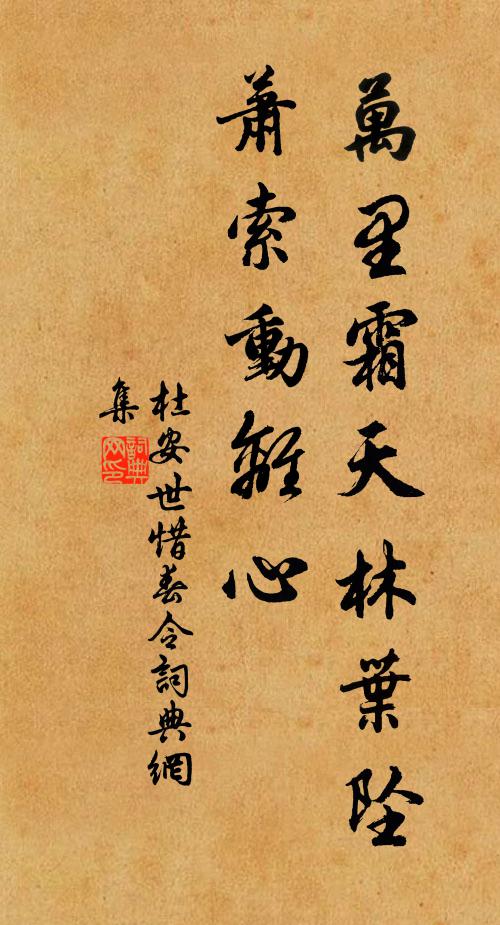 萬里霜天林葉墜
蕭索動離心
杜安世惜春令詞典網
集
詞典網印